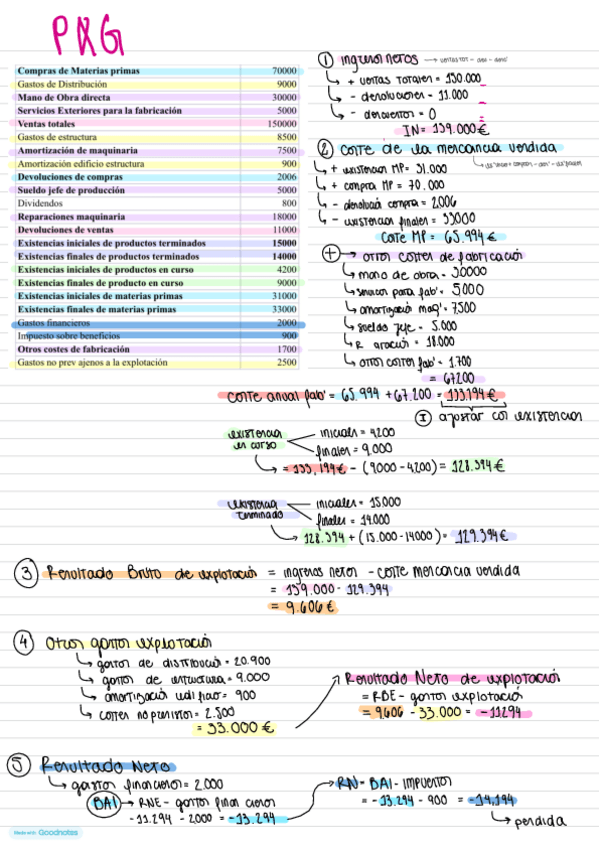 PXG
Compras de Materias primas 70000
Gastos de Distribución 9000
Mano de Obra directa 30000
Servicios Exteriores para la fabricación 5000
Ventas totales 150000
Gastos de estructura 8500
Amortización de maquinaria 7500
Amortización edificio estructura 900
Devoluciones de compras 2006
Sueldo jefe de producción 5000
Dividendos 800
Reparaciones maquinaria 18000
Devoluciones de ventas 11000
Existencias iniciales de productos terminados 15000
Existencias finales de productos terminados 14000
Existencias iniciales de productos en curso 4200
Existencias finales de producto en curso 9000
Existencias iniciales de materias primas 31000
Existencias finales de materias primas 33000
Gastos financieros 2000
Impuesto sobre beneficios 900
Otros costes de fabricación 1700
Gastos no prev ajenos a la explotación 2500
① ingresos netos → ventas tot - dev - desc'
↳ + ventas totales = 150.000
↳ - devoluciones = 11.000
↳ - descuentos = 0
IN = 139.000€
② coste de la mercancia vendida
↳ + existencias MP = 31.000
↳ + compra MP = 70.000
↳ - devolució compra = 2.006
↳ - existencias finales = 33000
Coste MP = 65.994€
⊕ → otros costes de fabricació
↳ mano de obra = 30000
↳ servicios para fab' = 5000
↳ amortizació maq' = 7.500
↳ sueldo jefe = 5.000
↳ R aració = 18.000
↳ otros costes fab' = 1.700
= 67200
coste anual fab' = 65.994 + 67.200 = 133.194€
① ajustar con existencias
existencias en curso
iniciales = 4200
finales = 9.000
↳ = 133,194€ - (9000-4200) = 128.394€
existencias terminado
iniciales = 15.000
finales = 14.000
↳ 128.394 + (15.000-14000) = 129.394€
③ Resultado Bruto de explotació = ingresos netos - coste mercancia vendida
= 139.000 - 129.394
= 9.606€
④ Otros gastos explotació
↳ gastos de distribució = 20.900
↳ gastos de estructura = 9.000
↳ amortizació edificio = 900
↳ costes no previstos = 2.500
= 33.000€
Resultado Neto de explotació
= RBE - gastos explotació
= 9.606 - 33.000 = -11.294
⑤ Resultado Neto
↳ gastos financieros = 2.000
BAI → RNE - gastos financieros
-11.294 - 2000 = -13.294
RN = BAI - impuestos
= -13.294 - 900 = -14,194
↳ perdida
Made with Goodnotes